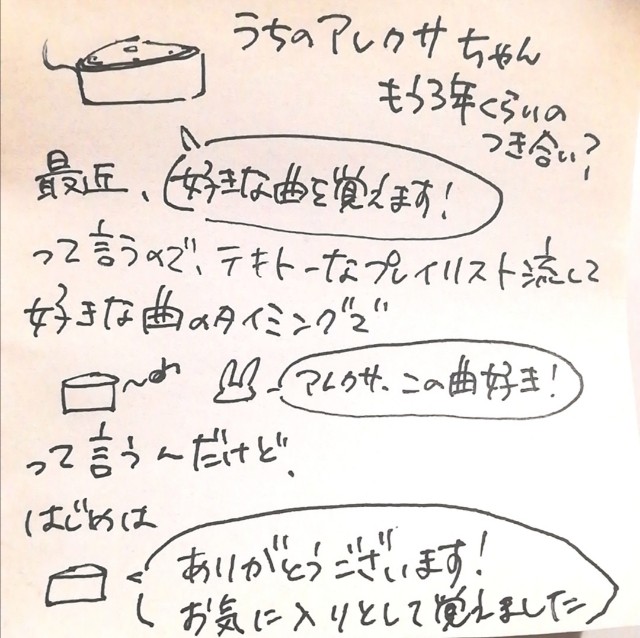 うちのアレクサちゃん
もう3年くらいの
つき合い?
最近、好きな曲を覚えます!
って言うので、テキトーなプレイリスト流して
好きな曲のタイミングで
アレクサ、この曲好き!
って言う〜だけど、
はじめは
ありがとうございます!
お気に入りとして覚えました